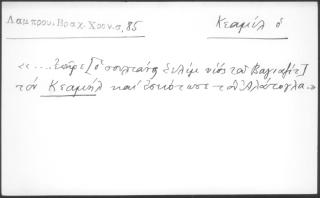 Λαμπρου, Βραχ. Χρον. σ, 85
Κεαμήλ ὁ
«... ἐπῆρε [ὁ σουλτάνος Σελίμ υἱὸς τοῦ Βαγιαζίτ]
τὸν Κεαμήλ καὶ ἐσκότωσε τὸν Ἀλάτογλα..»